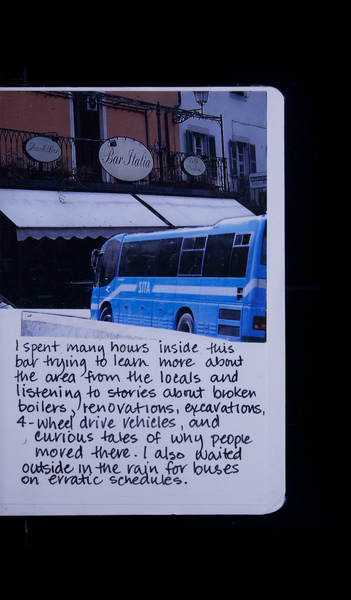 Bar Italia
SITA
I spent many hours inside this
bar trying to learn more about
the area from the locals and
listening to stories about broken
boilers, renovations, excavations,
4-wheel drive vehicles, and
curious tales of why people
moved there. I also waited
outside in the rain for buses
on erratic schedules.